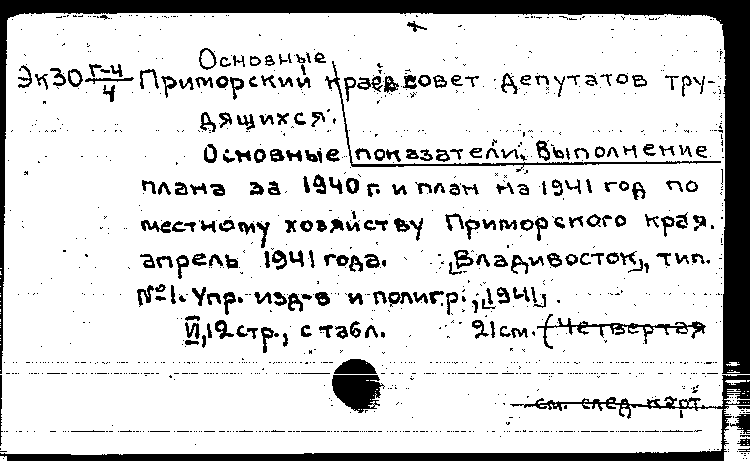 Основные
Эк30 Г-4/4 Приморский краев. совет депутатов тру-
дящихся.
Основные показатели. Выполнение
плана за 1940 г. и план на 1941 год по
местному хозяйству Приморского края.
апрель 1941 года. [Владивосток], тип.
№1. Упр. изд-в и полигр., [1941].
VI, 12 стр., с табл. 21 см. (Четвертая
см. след. карт.